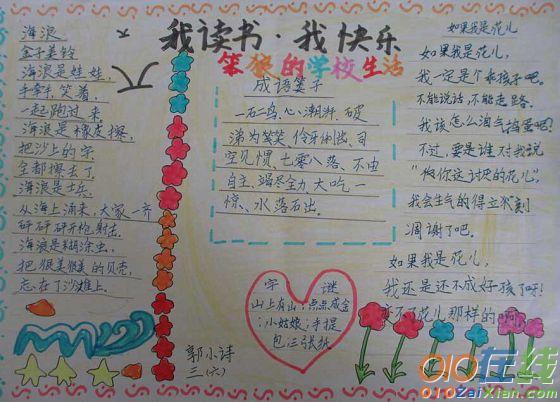 我读书·我快乐
笨狼的学校生活
海浪
金子美铃
海浪是娃娃,
手牵手,笑着,
一起跑过来。
海浪是橡皮擦,
把沙上的字
全都擦去了。
海浪是士兵,
从海上涌来,大家一齐
砰砰砰开枪射击。
海浪是糊涂虫,
把很美很美的贝壳,
忘在了沙滩上。
成语篓子
一石二鸟、心潮澎湃、破
涕为笑、伶牙俐齿、司
空见惯、七零八落、不由
自主、竭尽全力、大吃一
惊、水落石出。
字谜
山上有山;点点成金
;小姑娘,手提
包;三张纸
郭小诗
三(六)
如果我是花儿
如果我是花儿,
我一定是个乖孩子吧。
不能说话,不能走路,
我该怎么淘气捣蛋呢?
不过,要是谁对我说
"你这讨厌的花儿",
我会生气的得立刻
凋谢了吧。
如果我是花儿,
我还是还不成好孩子呀!
变不了花儿那样的啊
010在线
010ZaiXian.com